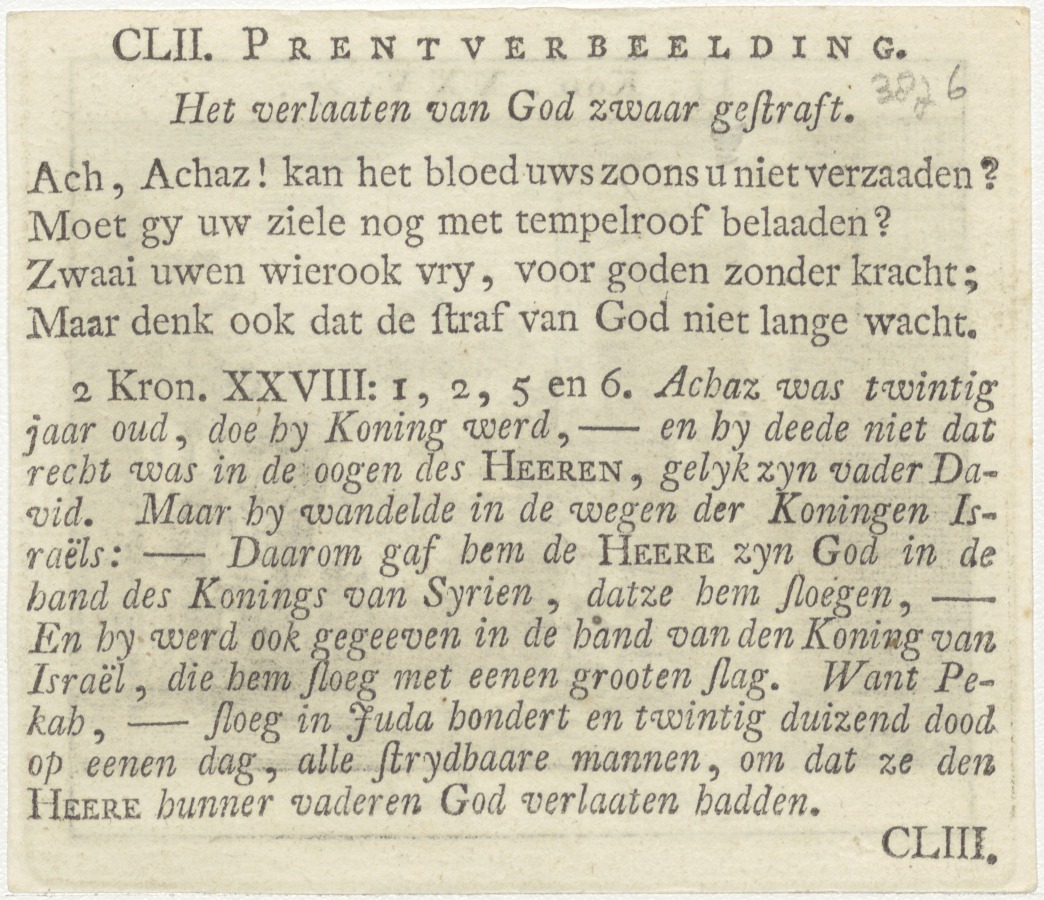 CLII. PRENTVERBEELDING.
3876
Het verlaaten van God zwaar geſtraft.
Ach, Achaz! kan het bloed uws zoons u niet verzaaden?
Moet gy uw ziele nog met tempelroof belaaden?
Zwaai uwen wierook vry, voor goden zonder kracht;
Maar denk ook dat de ſtraf van God niet lange wacht.
2 Kron. XXVIII: 1, 2, 5 en 6. Achaz was twintig
jaar oud, doe hy Koning werd, — en hy deede niet dat
recht was in de oogen des HEEREN, gelyk zyn vader Da-
vid. Maar hy wandelde in de wegen der Koningen Is-
raëls: — Daarom gaf hem de HEERE zyn God in de
hand des Konings van Syrien, datze hem ſloegen, —
En hy werd ook gegeeven in de hand van den Koning van
Israël, die hem ſloeg met eenen grooten ſlag. Want Pe-
kah, — ſloeg in Juda hondert en twintig duizend dood
op eenen dag, alle ſtrydbaare mannen, om dat ze den
HEERE hunner vaderen God verlaaten hadden.
CLIII.